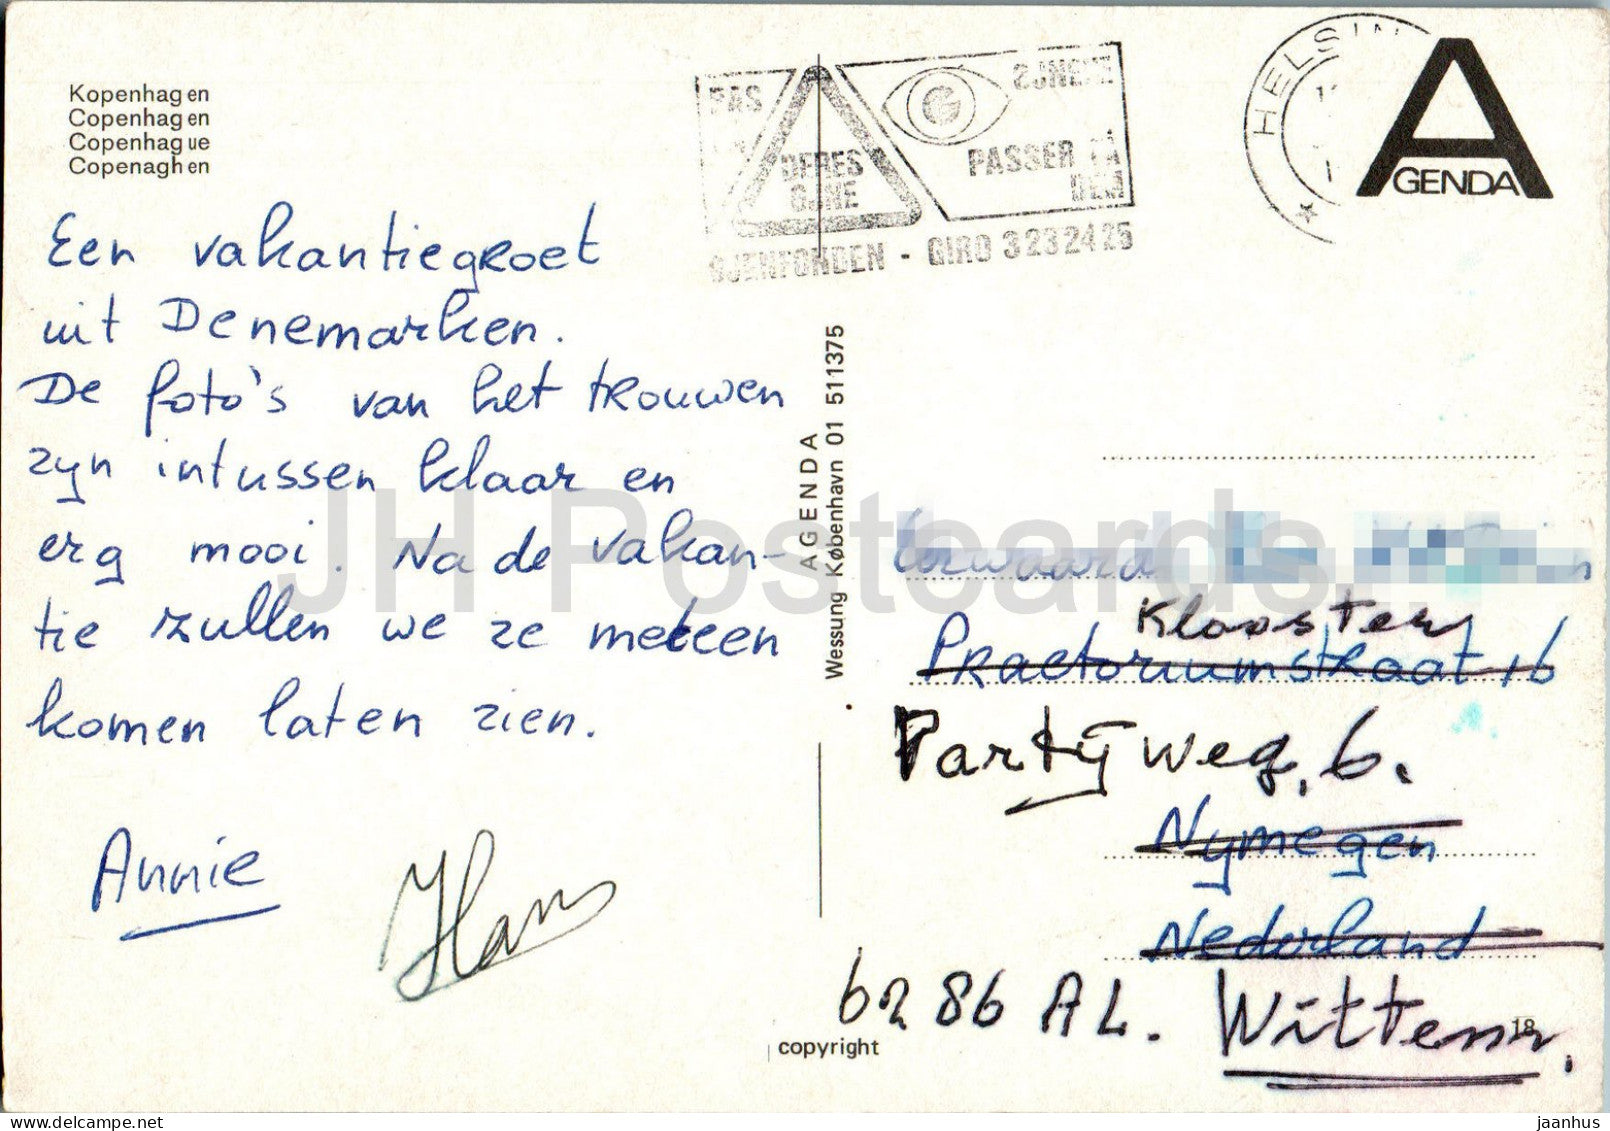 Kopenhagen
Copenhagen
Copenhague
Copenaghen
Een vakantiegroet
uit Denemarken.
De foto's van het trouwen
zyn intussen klaar en
erg mooi. Na de vakan-
tie zullen we ze meteen
komen laten zien.
Annie
Hans
PAS
DERES
ØJNE
ØJNENE
PASSER PÅ
DEM
ØJENFONDEN - GIRO 3 23 24 25
HELSIN
A
GENDA
AGENDA
Wessung København 01 511375
Klooster
Practoriumstraat 16
Partijweg, 6.
Nymegen
Nederland
6286 AL. Wittem.
18
copyright
JH Postcards
jaanhus